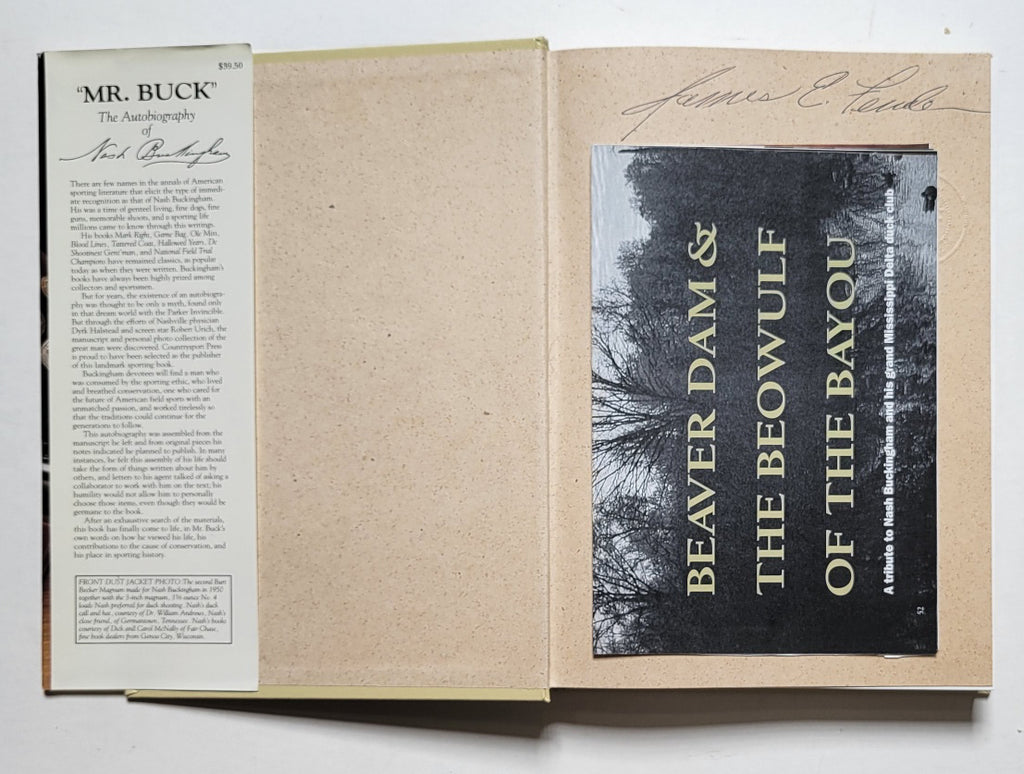 $39.50
"MR. BUCK"
The Autobiography
of
Nash Buckingham
There are few names in the annals of American
sporting literature that elicit the type of immedi-
ate recognition as that of Nash Buckingham.
His was a time of genteel living, fine dogs, fine
guns, memorable shoots, and a sporting life
millions came to know through his writings.
His books Mark Right, Game Bag, Ole Miss,
Blood Lines, Tattered Coat, Hallowed Years, De
Shootinest Gent'man, and National Field Trial
Champions have remained classics, as popular
today as when they were written. Buckingham's
books have always been highly prized among
collectors and sportsmen.
But for years, the existence of an autobiogra-
phy was thought to be only a myth, found only
in that dream world with the Parker Invincible.
But through the efforts of Nashville physician
Dyrk Halstead and screen star Robert Urich, the
manuscript and personal photo collection of the
great man were discovered. Countrysport Press
is proud to have been selected as the publisher
of this landmark sporting book.
Buckingham devotees will find a man who
was consumed by the sporting ethic, who lived
and breathed conservation, one who cared for
the future of American field sports with an
unmatched passion, and worked tirelessly so
that the traditions could continue for the
generations to follow.
This autobiography was assembled from the
manuscript he left and from original pieces his
notes indicated he planned to publish. In many
instances, he felt this assembly of his life should
take the form of things written about him by
others, and letters to his agent talked of asking a
collaborator to work with him on the text; his
humility would not allow him to personally
choose those items, even though they would be
germane to the book.
After an exhaustive search of the materials,
this book has finally come to life, in Mr. Buck's
own words on how he viewed his life, his
contributions to the cause of conservation, and
his place in sporting history.
FRONT DUST JACKET PHOTO: The second Burt
Becker Magnum made for Nash Buckingham in 1950
together with the 3-inch magnum, 1⅜ ounce No. 4
loads Nash preferred for duck shooting. Nash's duck
call and hat, courtesy of Dr. William Andrews, Nash's
close friend, of Germantown, Tennessee. Nash's books
courtesy of Dick and Carol McNally of Fair Chase,
fine book dealers from Genoa City, Wisconsin.
James E.
BEAVER DAM &
THE BEOWULF
OF THE BAYOU
A tribute to Nash Buckingham and his grand Mississippi Delta duck club
52